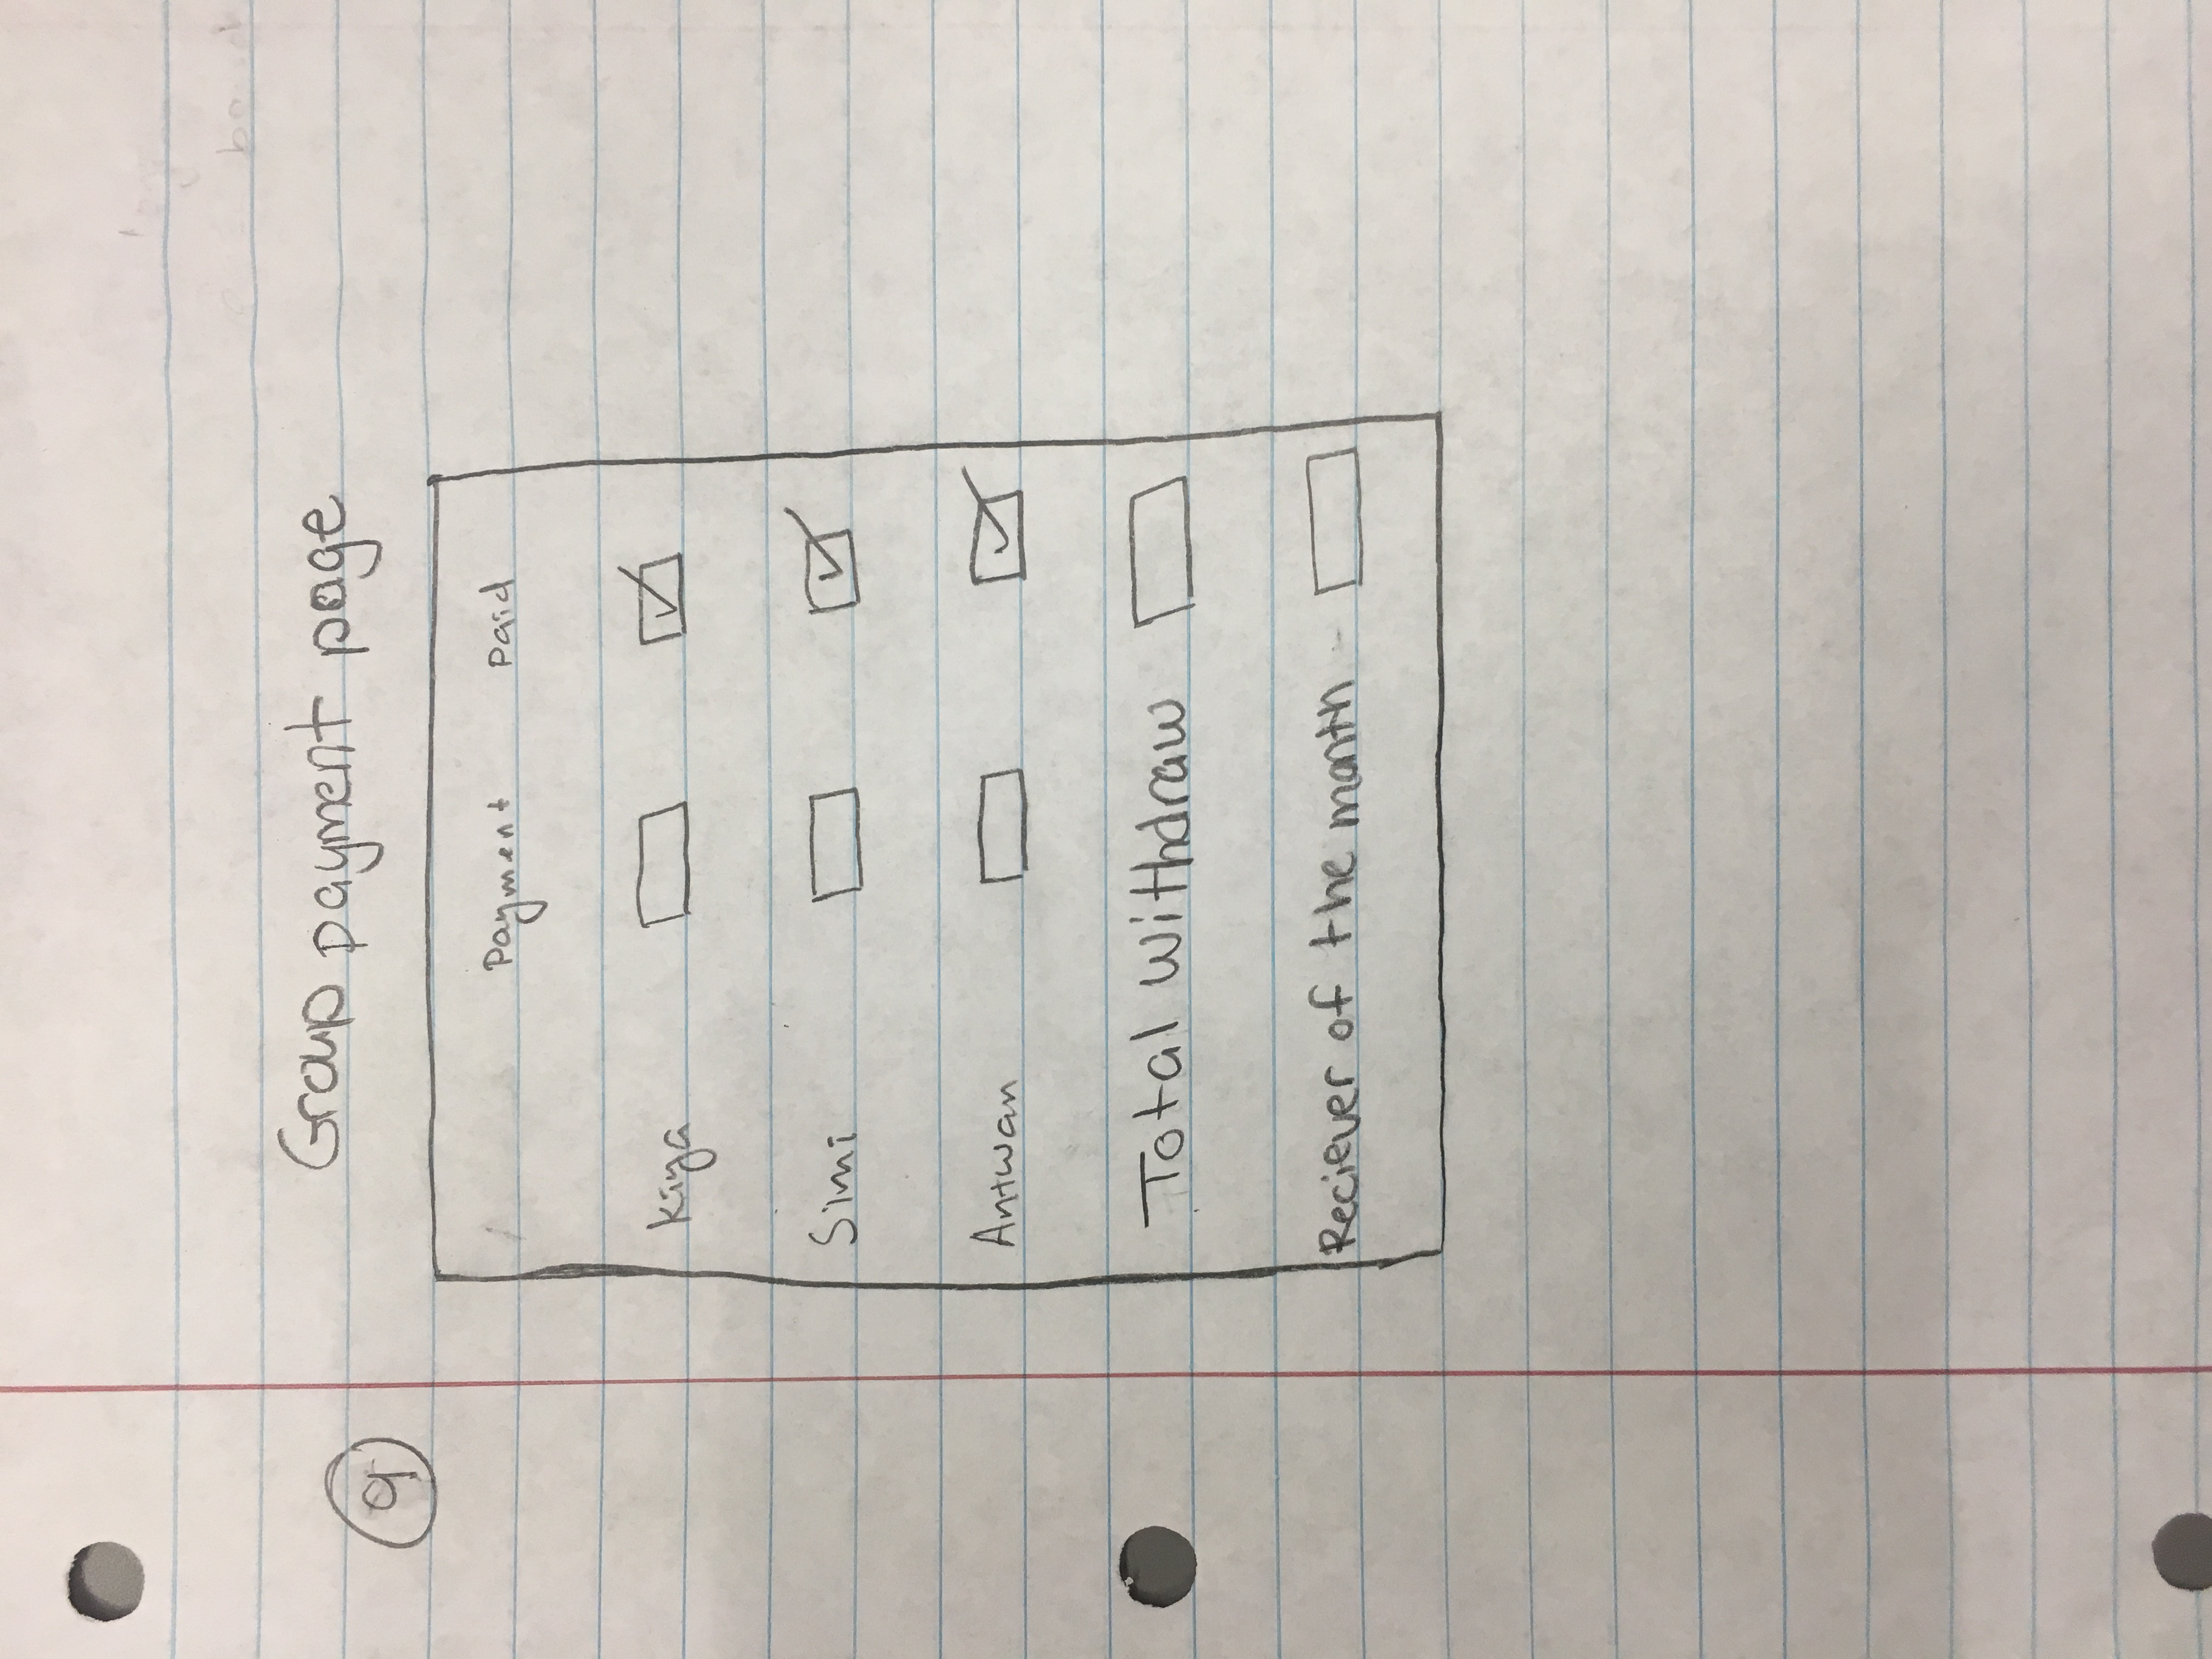 Group payment page
9
Payment Paid
Kiya
Simi
Antwan
Total Withdraw
Reciever of the month -